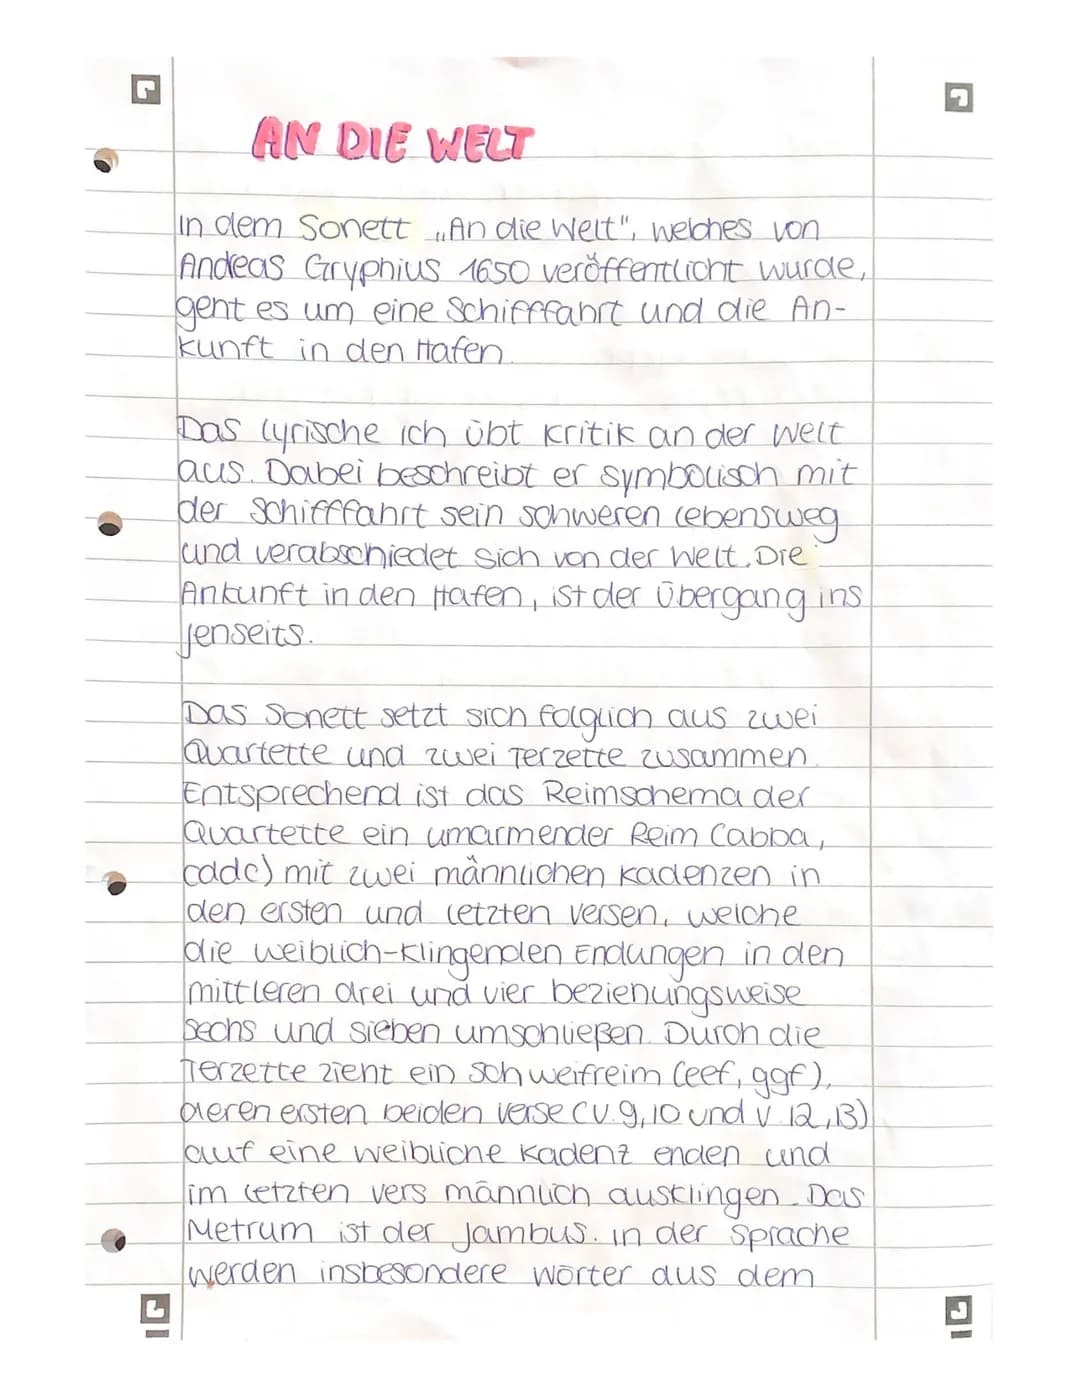 AN DIE WELT
In dem Sonett „An die Welt", welches von
Andreas Gryphius 1650 veröffentlicht wurde,
geht es um eine Schifffahrt und die An-
kunft in den Hafen.
Das lyrische ich übt Kritik an der Welt
aus. Dabei beschreibt er symbolisch mit
der Schifffahrt sein schweren Lebensweg
und verabschiedet sich von der Welt. Die
Ankunft in den Hafen, ist der Übergang ins
Jenseits.
Das Sonett setzt sich folglich aus zwei
Quartette und zwei Terzette zusammen.
Entsprechend ist das Reimschema der
Quartette ein umarmender Reim (abba,
cddc) mit zwei männlichen Kadenzen in
den ersten und letzten Versen, welche
die weiblich-klingenden Endungen in den
mittleren drei und vier beziehungsweise
sechs und sieben umschließen. Durch die
Terzette zieht ein Schweifreim (eef, ggf),
deren ersten beiden Verse (V. 9, 10 und V. 12, 13)
auf eine weibliche Kadenz enden und
im letzten Vers männlich ausklingen. Das
Metrum ist der Jambus. In der Sprache
werden insbesondere Wörter aus dem